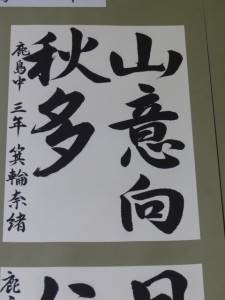 山意向
秋多
鹿島中 三年 箕輪奈緒